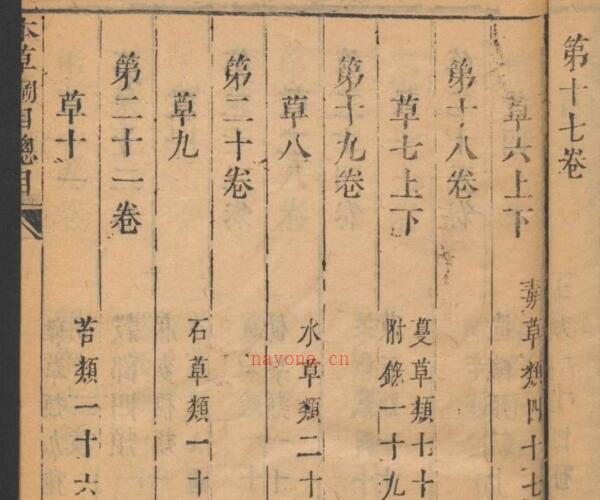 第十七卷
草六上下
毒草類四十七
第十八卷
草七上下
蔓草類七十
附錄一十九
第十九卷
草八
水草類二十
第二十卷
草九
石草類一十
第二十一卷
草十一
苔類一十六
本草綱目總目
nayona.cn